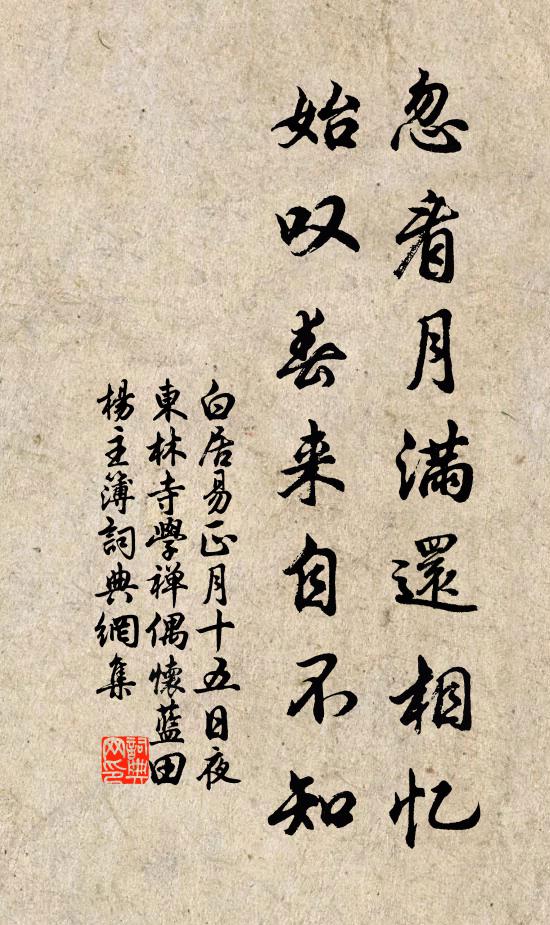 忽看月满還相忆
始叹春来自不知
白居易正月十五日夜
東林寺學禅偶懷藍田
楊主簿詞典網集
詞典網印